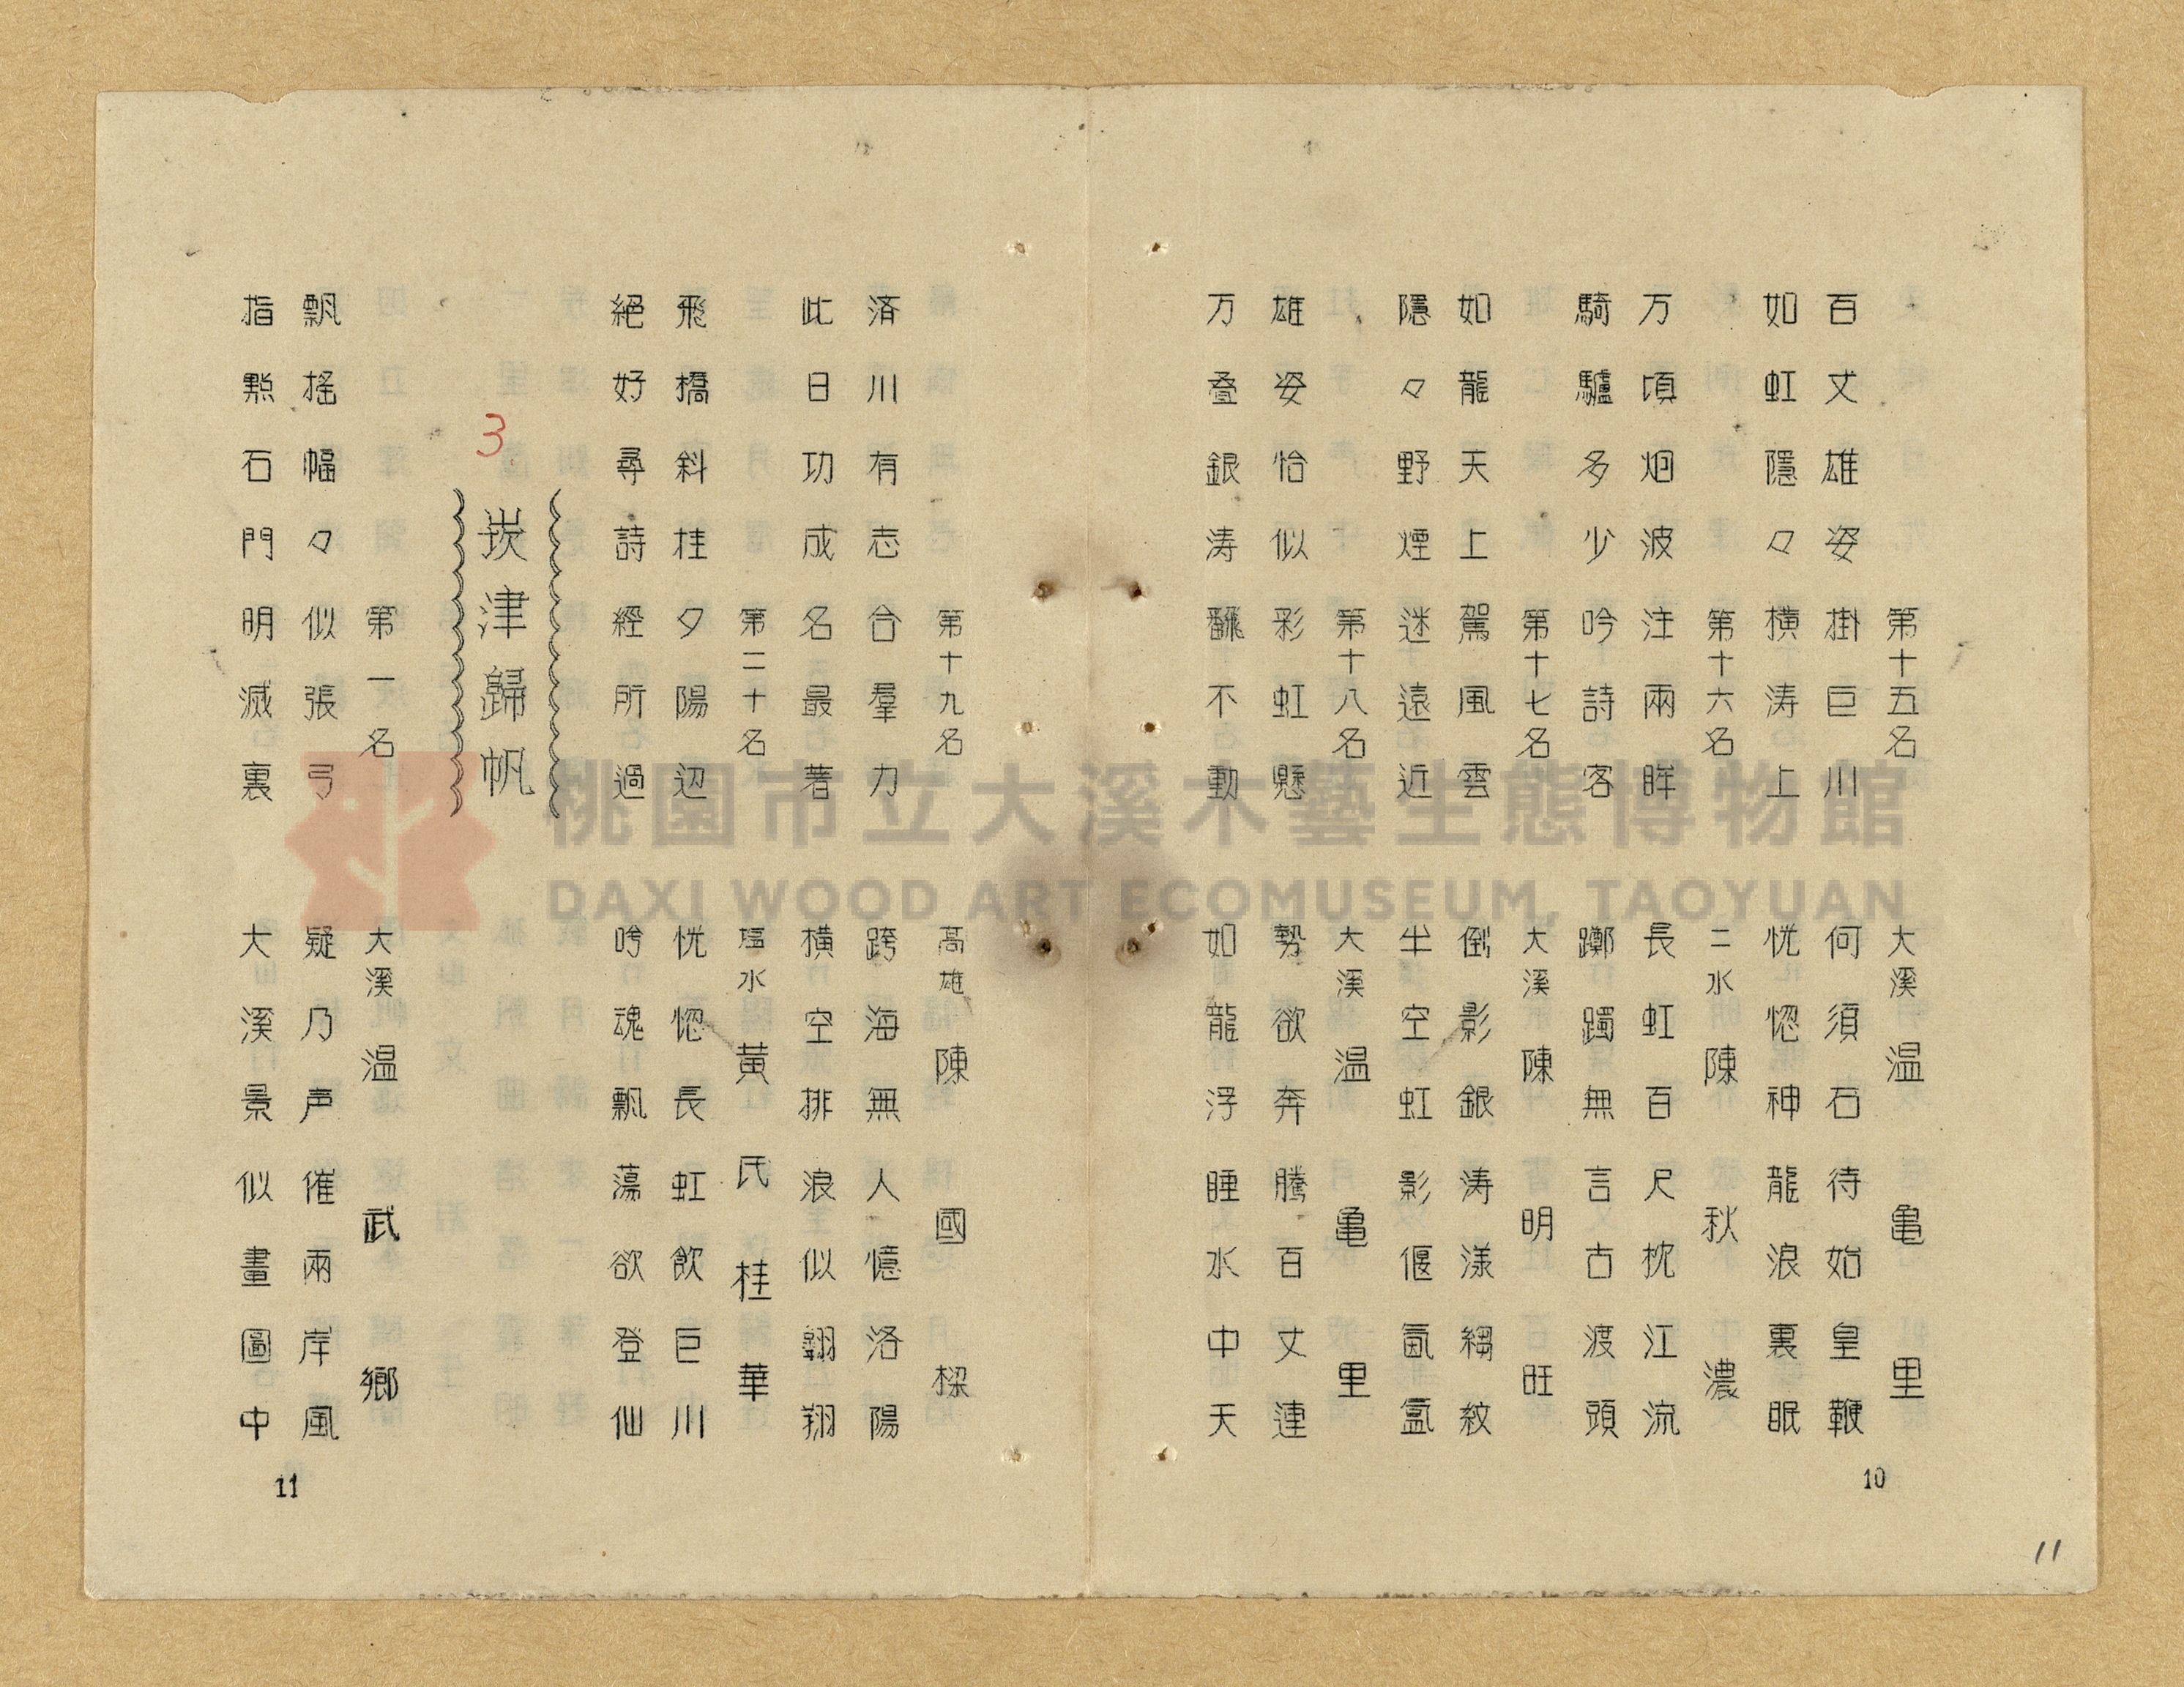 第十五名 大溪 温亀里
百丈雄姿掛巨川 何須石待始皇鞭
如虹隱々橫涛上 恍惚神龍浪裏眠
第十六名 二水 陳秋濃
万頃烟波注兩眸 長虹百尺枕江流
騎驢多少吟詩客 躑躅無言古渡頭
第十七名 大溪 陳明旺
如龍天上駕風雲 倒影銀涛漾縐紋
隱々野煙迷遠近 半空虹影偃氤氳
第十八名 大溪 温亀里
雄姿恰似彩虹懸 勢欲奔騰百丈連
万叠銀涛飜不動 如龍浮睡水中天
10
11
第十九名 高雄 陳國樑
済川有志合羣力 跨海無人憶洛陽
此日功成名最著 橫空排浪似翱翔
第二十名 塩水 黃氏桂華
飛橋斜柱夕陽辺 恍惚長虹飲巨川
絕好尋詩經所過 吟魂飄蕩欲登仙
3
崁津歸帆
第一名 大溪 温武鄉
飄搖幅々似張弓 疑乃声催兩岸風
指點石門明滅裏 大溪景似畫圖中
11
桃園市立大溪木藝生態博物館
DAXI WOOD ART ECOMUSEUM, TAOYUAN